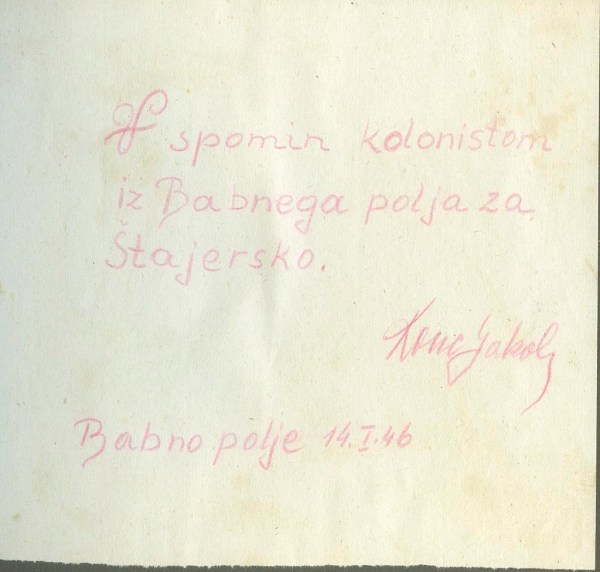 V spomin kolonistom
iz Babnega polja za
Štajersko.
Jakob
Babno polje 14.I.46